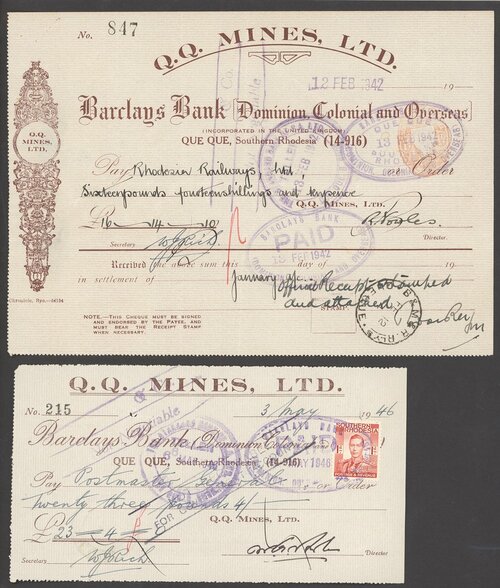 No. 847
Q.Q. MINES, LTD.
12 FEB 1942 19
Barclays Bank (Dominion, Colonial and Overseas)
(INCORPORATED IN THE UNITED KINGDOM)
QUE QUE, Southern Rhodesia (14-916)
Q.Q. MINES, LTD.
Pay Rhodesia Railways, Ltd, or Order
Sixteen pounds fourteen shillings and tenpence
Q.Q. MINES, LTD.
£16-14-10
Secretary
Director.
BARCLAYS BANK
PAID
13 FEB 1942
Received the above sum this day of 19
in settlement of January a/c. Official Receipt stamped
and attached
STAMP
NOTE.—THIS CHEQUE MUST BE SIGNED
AND ENDORSED BY THE PAYEE, AND
MUST BEAR THE RECEIPT STAMP
WHEN NECESSARY.
Q.Q. MINES, LTD.
No. 215
3 May 1946
Barclays Bank (Dominion, Colonial and Overseas)
QUE QUE, Southern Rhodesia (14-916)
SOUTHERN RHODESIA
Pay Postmaster General or Order
Twenty three pounds 4/-
Q.Q. MINES, LTD.
£23-4-0
Secretary
Director